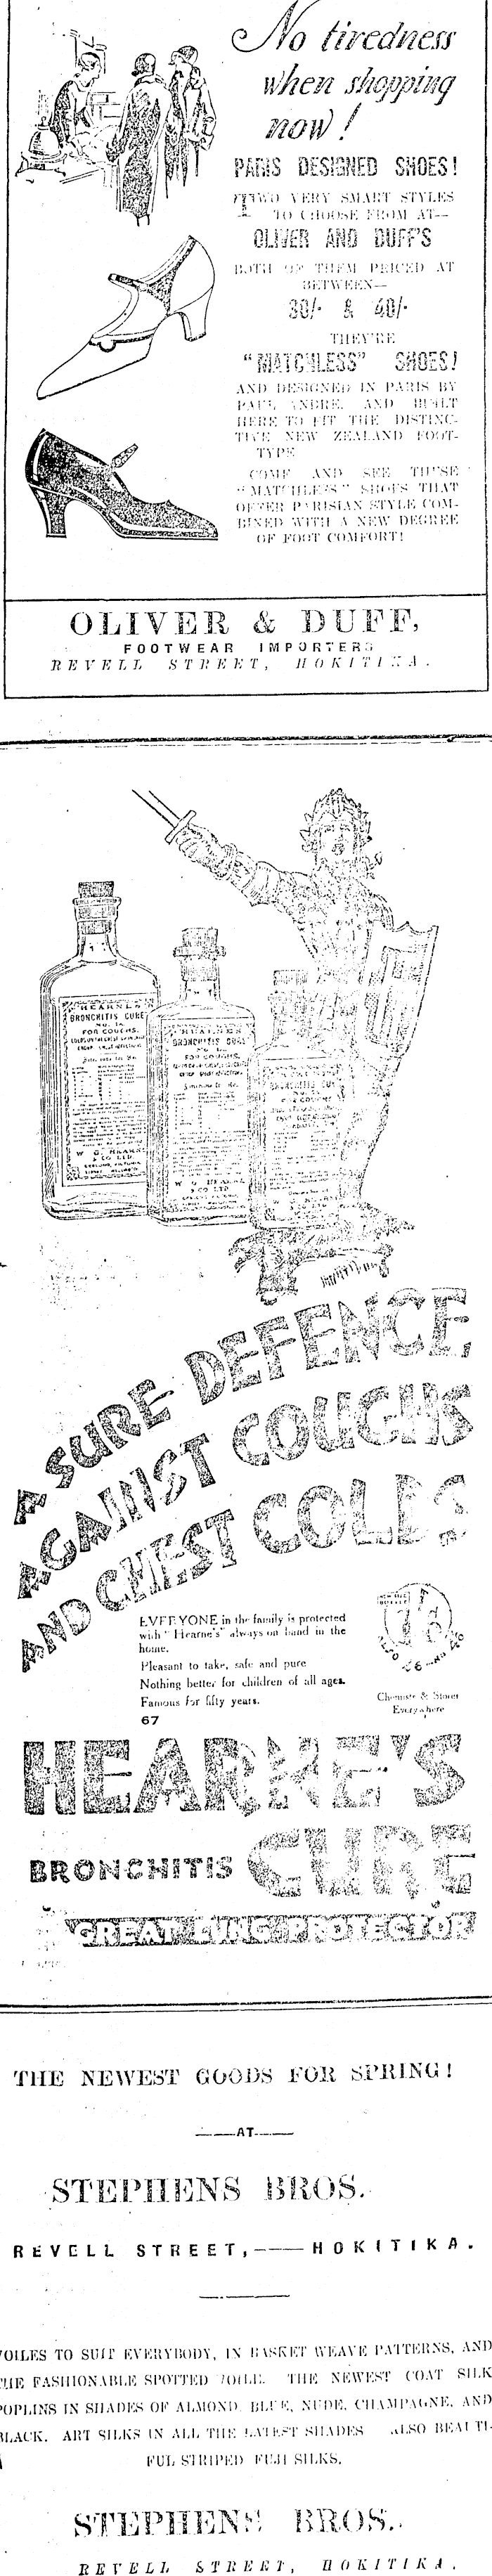 No tiredness
when shopping
now!
PARIS DESIGNED SHOES!
TWO VERY SMART STYLES
TO CHOOSE FROM AT—
OLIVER AND DUFF'S
BOTH OF THEM PRICED AT
BETWEEN—
30/- & 40/-
THEY'RE
"MATCHLESS" SHOES!
AND DESIGNED IN PARIS BY
PAUL ANDRE, AND BUILT
HERE TO FIT THE DISTINC-
TIVE NEW ZEALAND FOOT-
TYPE
COME AND SEE THESE
"MATCHLESS" SHOES THAT
OFFER PARISIAN STYLE COM-
BINED WITH A NEW DEGREE
OF FOOT COMFORT!
OLIVER & DUFF,
FOOTWEAR IMPORTERS
REVELL STREET, HOKITIKA.
HEARNE'S
BRONCHITIS CURE
NO. 1A.
FOR COUGHS,
W. G. HEARNE
& CO LTD
HEARNE'S
BRONCHITIS CURE
FOR COUGHS,
W. G. HEARNE
& CO LTD
BRONCHITIS CURE
FOR COUGHS
A SURE DEFENCE
AGAINST COUGHS
AND CHEST COLDS
EVERYONE in the family is protected
with "Hearne's" always on hand in the
home.
Pleasant to take, safe and pure
Nothing better for children of all ages.
Famous for fifty years.
67
Chemists & Stores
Everywhere
HEARNE'S
BRONCHITIS CURE
GREAT LUNG PROTECTOR
THE NEWEST GOODS FOR SPRING!
——AT——
STEPHENS BROS.
REVELL STREET,——HOKITIKA.
VOILES TO SUIT EVERYBODY, IN BASKET WEAVE PATTERNS, AND
THE FASHIONABLE SPOTTED VOILE. THE NEWEST COAT SILK
POPLINS IN SHADES OF ALMOND, BLUE, NUDE, CHAMPAGNE, AND
BLACK. ART SILKS IN ALL THE LATEST SHADES ALSO BEAUTI-
FUL STRIPED FUJI SILKS.
STEPHENS BROS.,
REVELL STREET, HOKITIKA.